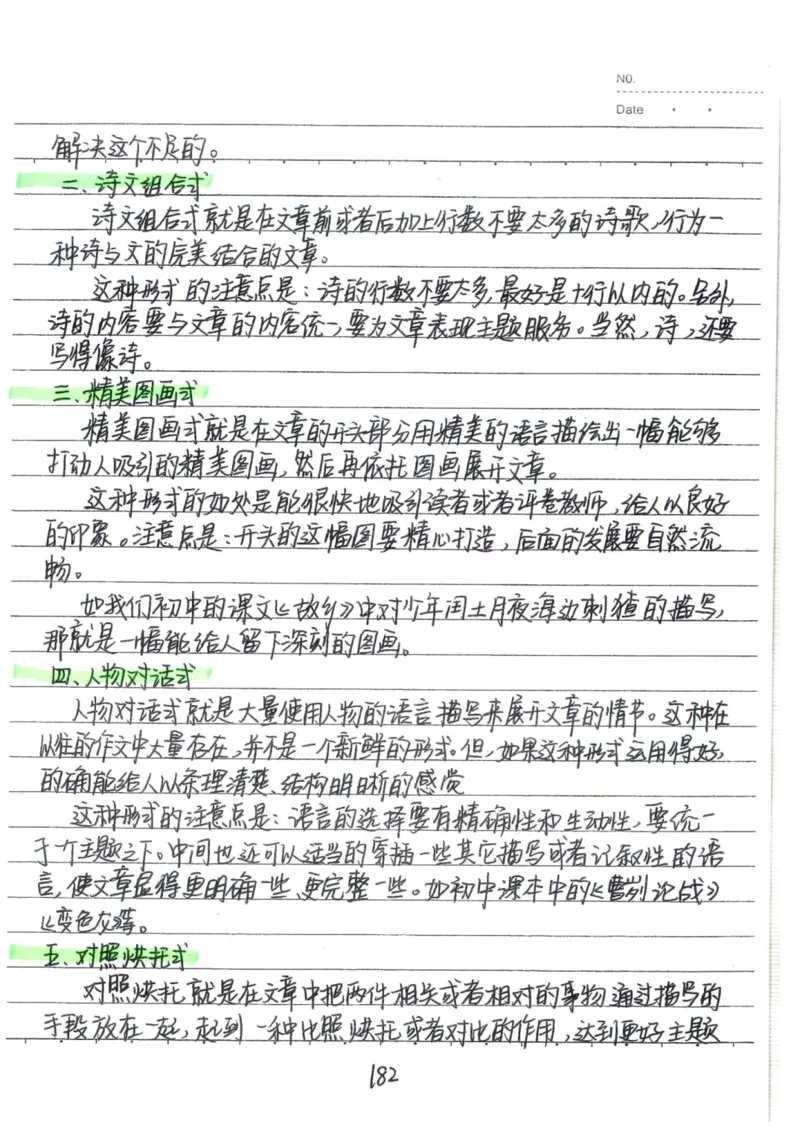 NO.
Date
解决这个不足的。
二、诗文组合式
诗文组合式就是在文章前或者后加上行数不要太多的诗歌,行为一
种诗与文的完美结合的文章。
这种形式的注意点是:诗的行数不要太多,最好是十行以内的。另外,
诗的内容要与文章的内容统一,要为文章表现主题服务。当然,诗,还要
写得像诗。
三、精美图画式
精美图画式就是在文章的开头部分用精美的语言描绘出一幅能够
打动人吸引的精美图画,然后再依托图画展开文章。
这种形式的如处是能很快地吸引读者或者评卷教师,给人以良好
的印象。注意点是:开头的这幅图要精心打造,后面的发展要自然流
畅。
如我们初中的课文《故乡》中对少年闰土月夜海边刺猹的描写,
那就是一幅能给人留下深刻的图画。
四、人物对话式
人物对话式就是大量使用人物的语言描写来展开文章的情节。这种在
以往的作文中大量存在,并不是一个新鲜的形式。但,如果这种形式运用得好,
的确能给人以条理清楚、结构明晰的感觉
这种形式的注意点是:语言的选择要有精确性和生动性,要统一
于个主题之下。中间也还可以适当的穿插一些其它描写或者记叙性的语
言,使文章显得更明确一些、更完整一些。如初中课本中的《曹刿论战》
《变色龙》等。
五、对照烘托式
对照烘托就是在文章中把两件相关或者相对的事物通过描写的
手段放在一起,起到一种比照烘托或者对比的作用,达到更好主题
182